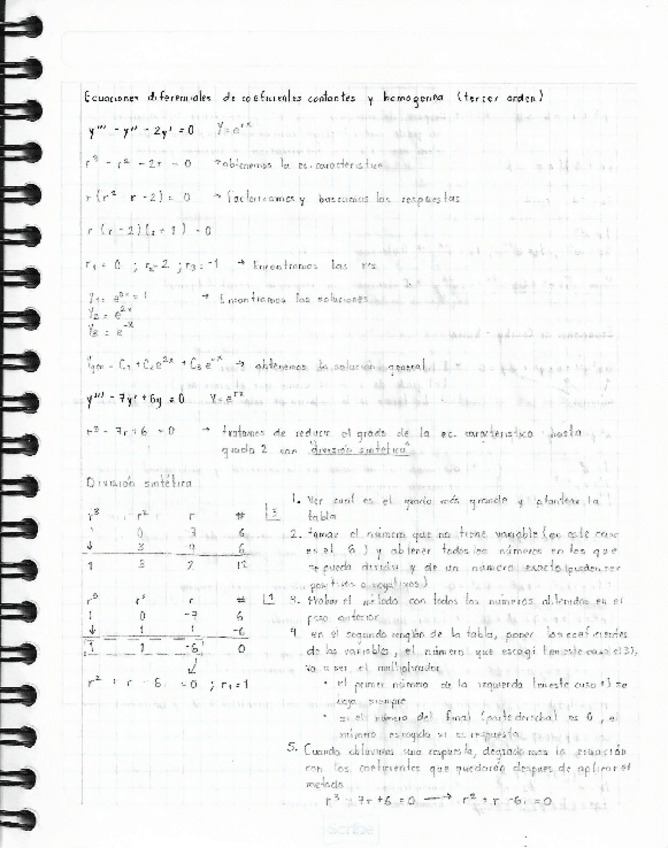 Ecuaciones diferenciales de coeficientes contantes y homogenea (tercer orden)
y''' - y'' - 2y' = 0 Y = e^rx
r³ - r² - 2r = 0 → obtenemos la ec. caracteristica
r (r² - r - 2) = 0 → Factorizamos y buscamos las respuestas
r (r - 2)(r + 1) = 0
r₁ = 0 ; r₂ = 2 ; r₃ = -1 → Encontramos las r's
Y₁ = e^0x = 1 → Encontramos las soluciones
Y₂ = e^2x
Y₃ = e^-x
C₁ + C₂e^2x + C₃e^-x → obtenemos la solución general
y''' - 7y' + 6y = 0 Y = e^rx
r³ - 7r + 6 = 0 → tratamos de reducir el grado de la ec. caracteristica hasta
grado 2 con "división sintética"
División sintética
r³ r² r # |3
1 0 7 6
↓ 3 9 6
1 3 2 12
r³ r² r # |1
1 0 -7 6
↓ 1 1 -6
1 1 -6 0
r² + r - 6 = 0 ; r₁ = 1
1. Ver cual es el grado más grande y plantear la
tabla
2. tomar el número que no tiene variable (en este caso
es el 6) y obtener todos los números en los que
se pueda dividir y de un número exacto (pueden ser
positivos o negativos)
3. Probar el método con todos los números obtenidos en el
paso anterior
4. en el segundo renglón de la tabla, poner los coeficientes
de las variables, el número que escogi (en este caso el 3),
va a ser el multiplicador
• el primer número de la izquierda (en este caso 1) se
baja siempre
• si el número del final (parte derecha) es 0, el
número escogido si es respuesta
5. Cuando obtuvimos una respuesta, degradamos la ecuación
con los coeficientes que quedarón despues de aplicar el
metodo
r³ - 7r + 6 = 0 → r² + r - 6 = 0
scribe